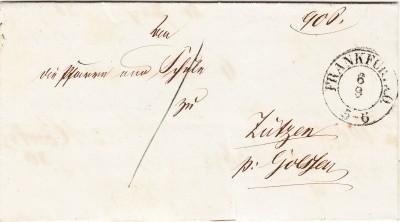 908.
An
die Pfarre und Schule
zu
Zützen
p: Golssen
FRANKFURT A.O
6
9
5-6